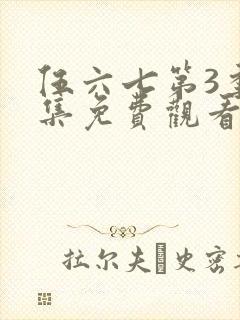 伍六七第3季
集免費觀看
拉尔夫·史密